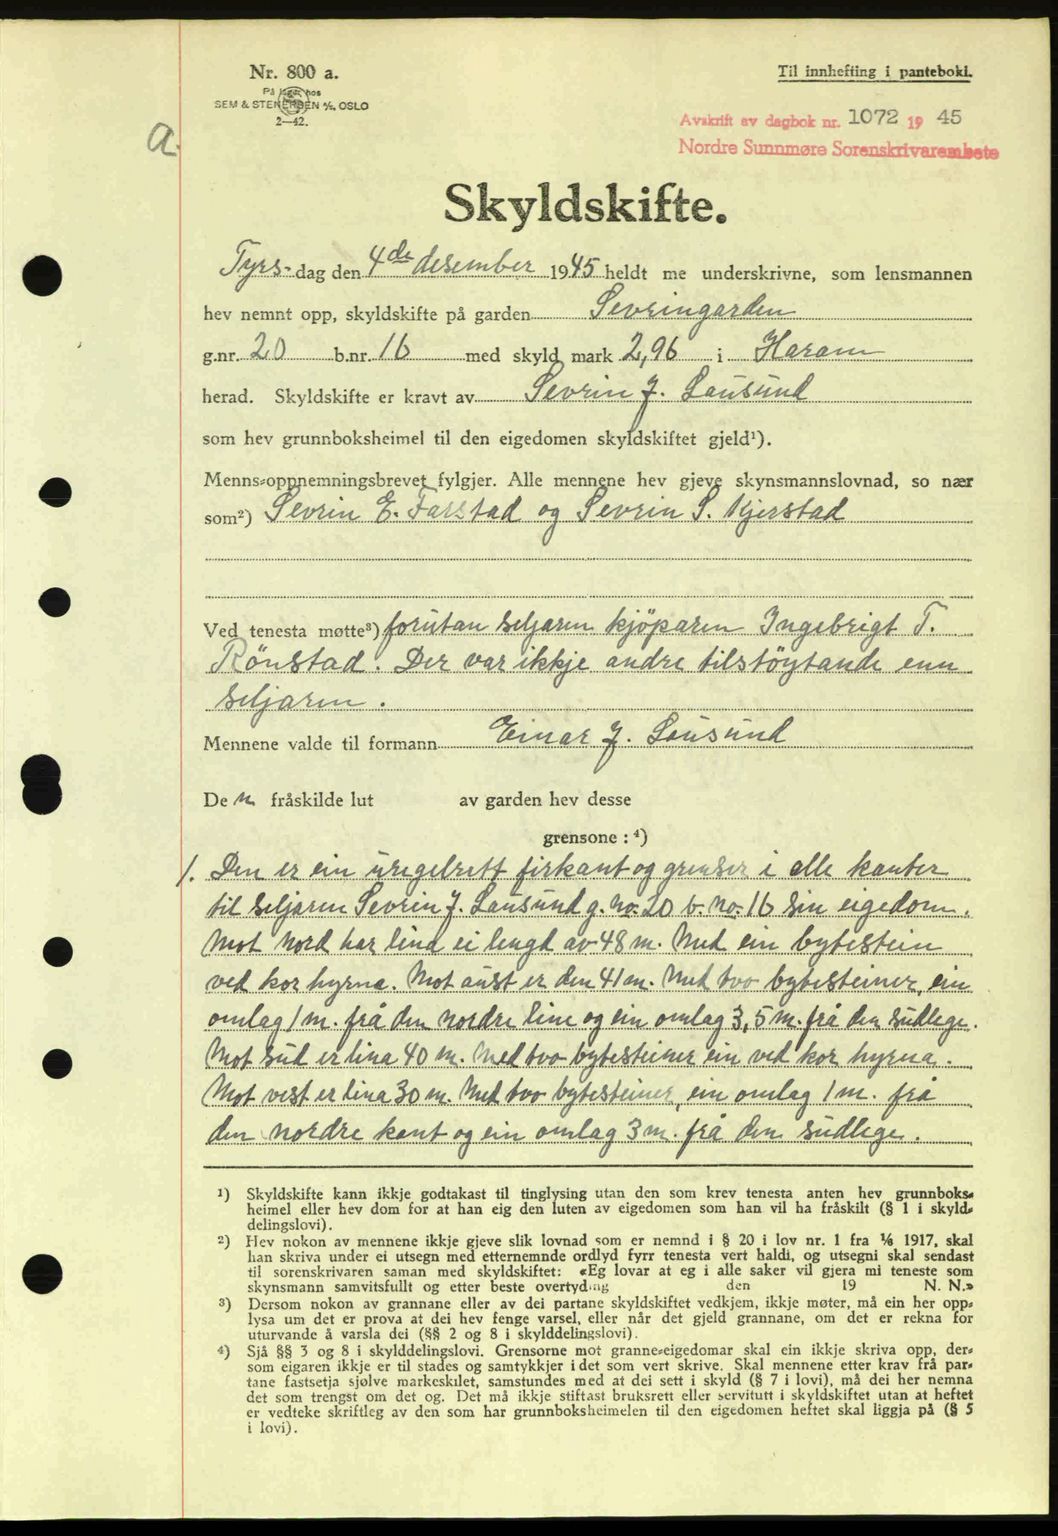 Nr. 800 a.
Til innhefting i panteboki.
På lager hos
SEM & STENERSEN A/S, OSLO
2—42.
Avskrift av dagbok nr. 1072 19 45
Nordre Sunnmøre Sorenskrivarembete
a.
Skyldskifte.
Tyrs-dag den 4de desember 1945 heldt me underskrivne, som lensmannen
hev nemnt opp, skyldskifte på garden Sevringarden
g.nr. 20 b.nr. 16 med skyld mark 2,96 i Haram
herad. Skyldskifte er kravt av Sevrin J. Lausund
som hev grunnboksheimel til den eigedomen skyldskiftet gjeld¹).
Menns-oppnemningsbrevet fylgjer. Alle mennene hev gjeve skynsmannslovnad, so nær
som²) Sevrin E. Farstad og Sevrin S. Kjerstad
Ved tenesta møtte³) forutan seljaren kjöparen Ingebrigt T.
Rönstad. Der var ikkje andre tilstöytande enn
seljaren.
Mennene valde til formann Einar J. Lausund
De n fråskilde lut av garden hev desse
grensone : ⁴)
1. Den er ein uregelrett firkant og grenser i alle kanter
til seljaren Sevrin J. Lausund g. no. 20 b. no. 16 sin eigedom.
Mot nord har lina ei lengd av 48 m. Med ein bytestein
ved kor hyrna. Mot aust er den 41 m. Med tvo bytesteiner, ein
omlag 1 m. frå den nordre line og ein omlag 3,5 m. frå den sudlege.
Mot sud er lina 40 m. Med tvo bytesteiner ein ved kor hyrna.
Mot vest er lina 30 m. Med tvo bytesteiner, ein omlag 1 m. frå
den nordre kant og ein omlag 3 m. frå den sudlege.
¹) Skyldskifte kann ikkje godtakast til tinglysing utan den som krev tenesta anten hev grunnboks-
heimel eller hev dom for at han eig den luten av eigedomen som han vil ha fråskilt (§ 1 i skyld-
delingslovi).
²) Hev nokon av mennene ikkje gjeve slik lovnad som er nemnd i § 20 i lov nr. 1 fra 1/6 1917, skal
han skriva under ei utsegn med etternemnde ordlyd fyrr tenesta vert haldi, og utsegni skal sendast
til sorenskrivaren saman med skyldskiftet: «Eg lovar at eg i alle saker vil gjera mi teneste som
skynsmann samvitsfullt og etter beste overtyding den 19 N. N.»
³) Dersom nokon av grannane eller av dei partane skyldskiftet vedkjem, ikkje møter, må ein her opp-
lysa um det er prova at dei hev fenge varsel, eller når det gjeld grannane, om det er rekna for
uturvande å varsla dei (§§ 2 og 8 i skylddelingslovi).
⁴) Sjå §§ 3 og 8 i skylddelingslovi. Grensorne mot granne-eigedomar skal ein ikkje skriva opp, der-
som eigaren ikkje er til stades og samtykkjer i det som vert skrive. Skal mennene etter krav frå par-
tane fastsetja sjølve markeskilet, samstundes med at dei sett i skyld (§ 7 i lovi), må dei her nemna
det som trengst om det og. Det må ikkje stiftast bruksrett eller servitutt i skyldskiftet utan at heftet
er vedteke skriftleg av den som har grunnboksheimelen til den eigedomen heftet skal liggja på (§ 5
i lovi).